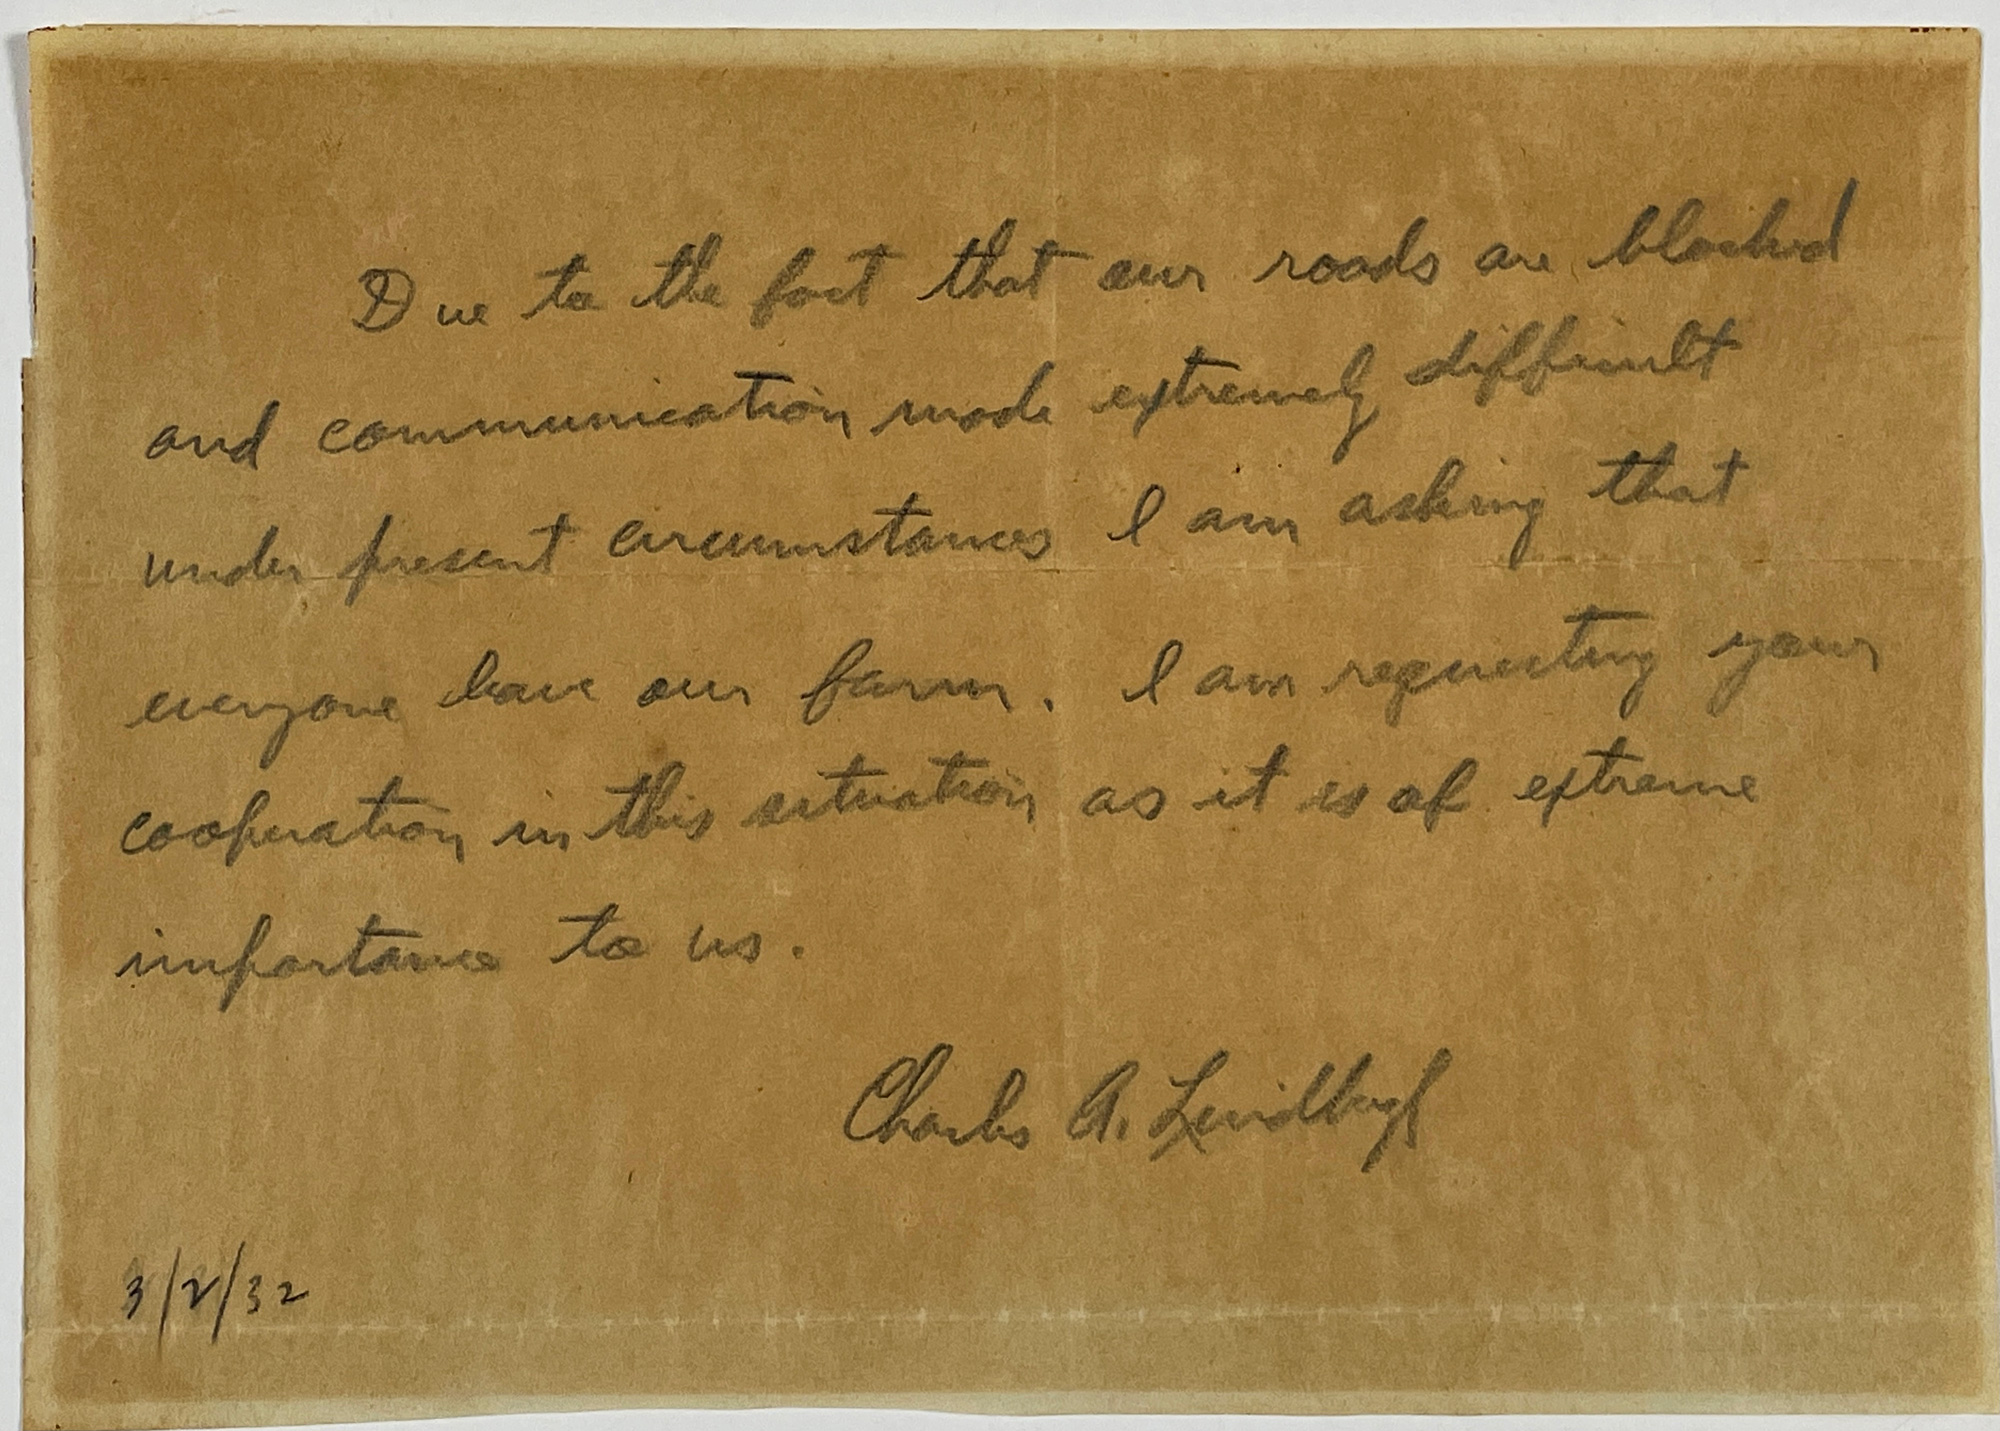 Due to the fact that our roads are blocked
and communication made extremely difficult
under present circumstances I am asking that
everyone leave our farm. I am requesting your
cooperation in this situation as it is of extreme
importance to us.
Charles A. Lindbergh
3/2/32